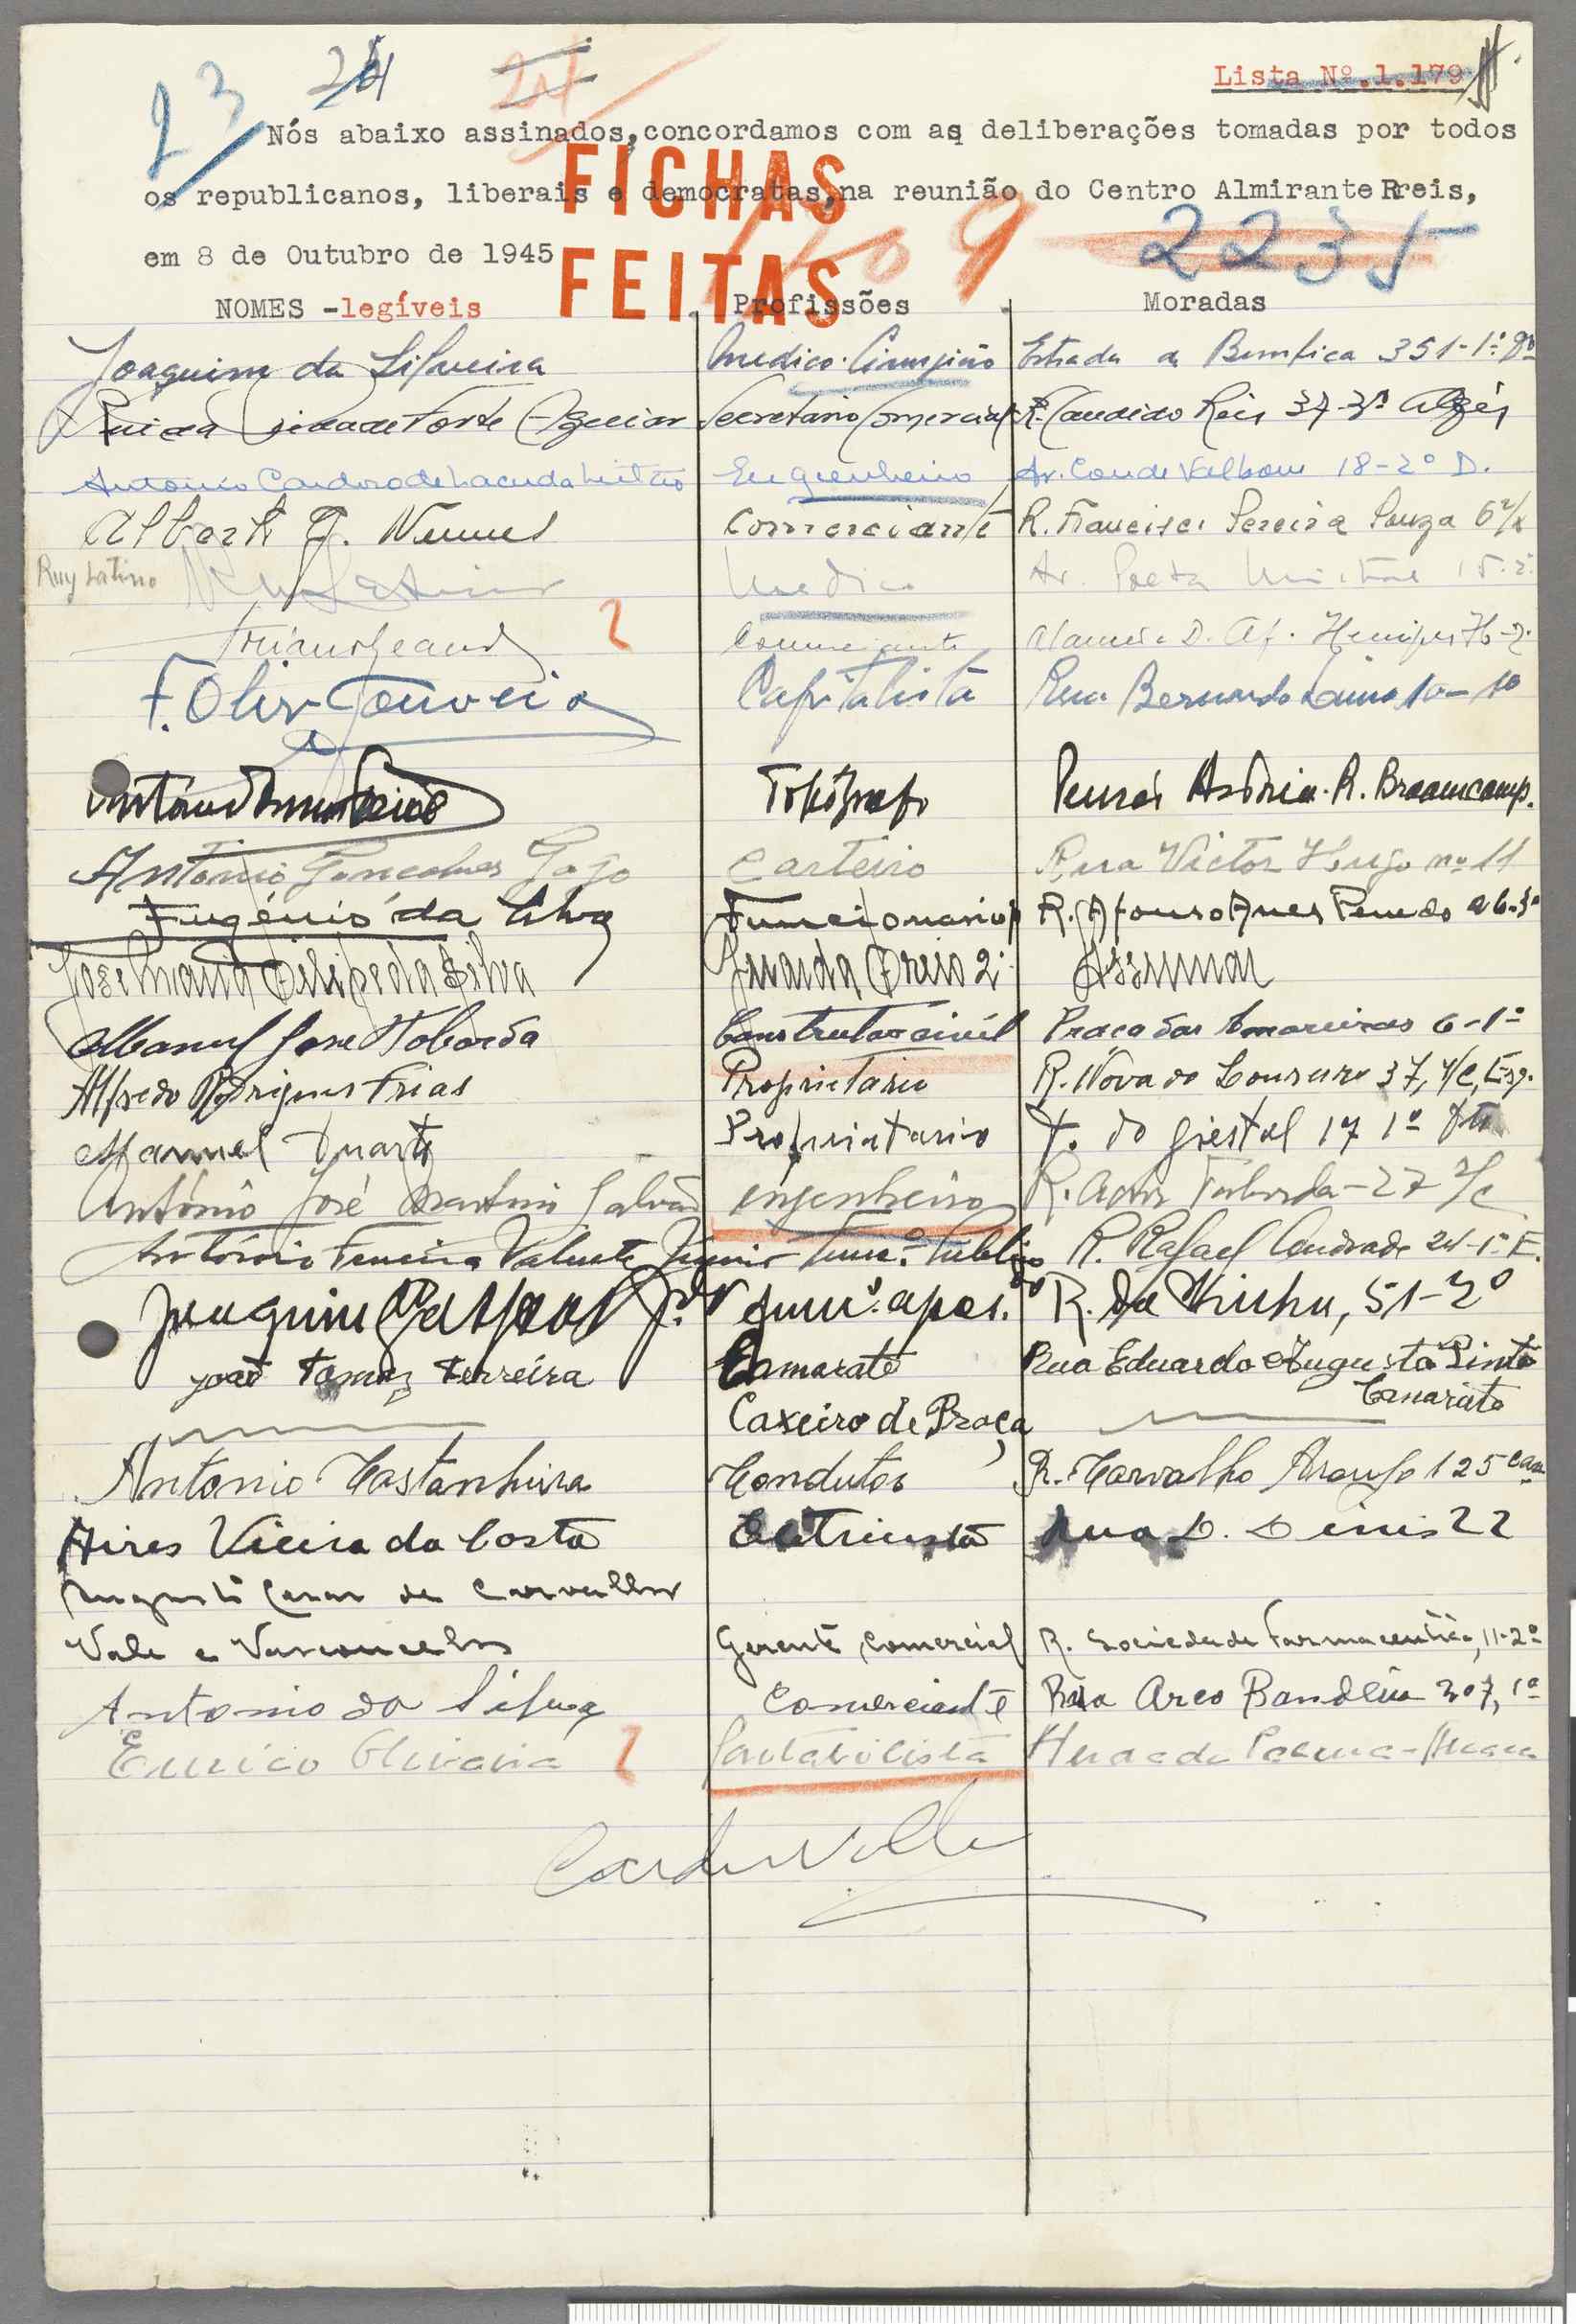 Lista Nº.1.179
23 24 24
Nós abaixo assinados,concordamos com as deliberações tomadas por todos
os republicanos, liberais e democratas,na reunião do Centro Almirante Rreis,
em 8 de Outubro de 1945
FICHAS
FEITAS
2235
NOMES -legíveis Profissões Moradas
Joaquim da Silveira Medico. Cirurgião Estrada de Bemfica 351-1º
Rui da Forte Aguiar Secretario Comercial R. Candido Reis 37-3º Algés
Antonio Cardoso de Lacerda Engenheiro Av. Conde Valbom 18-2º D.
Nunes Comerciante R. Francisco Pereira Souza
Ruy Latino Medico Av.
Comerciante Alameda D. Af. Henriques
F. Oliv. Gouveia Capitalista Rua Bernardo Lima 10-1º
Topógrafo Pensão Astória. R. Braamcamp.
António Gonçalves Gago Carteiro Rua Victor Hugo nº 11
Eugénio da Silva Funcionario R. Afonso Anes Penedo
José Maria Filipe da Silva Guarda Assumar
Manuel José Taborda Construtor civil Praça das Amoreiras 6-1º
Alfredo Rodrigues Frias Proprietario R. Nova do Loureiro 37, r/c, Esq.
Manuel Duarte Proprietario T. do Giestal 17 1º
António José Martins Galvão engenheiro R. Actor Taborda-27 r/c
António Ferreira Valente Júnior Func.º Público R. Rafael Andrade 24-1º E.
Joaquim Gaspar Jor func.º apos.do R. da 51-2º
João Tomaz Ferreira Camarate Rua Eduardo Augusto Pinto
Camarate
Caxeiro de Praça
Antonio Castanheira Condutor R. Carvalho Araujo 125
Aires Vieira da Costa Rua D. Dinis 22
Augusto Cesar de Carvalho
Vale e Vasconcelos Gerente comercial R. Sociedade Farmaceutica, 11-2º
Antonio da Silva Comerciante Rua Arco Bandeira 207, 1º
Eurico Oliveira Contabilista